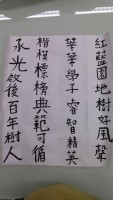 紅藍園地樹好風聲
莘莘學子睿智精英
楷模標榜典範可循
承光啟後百年樹人